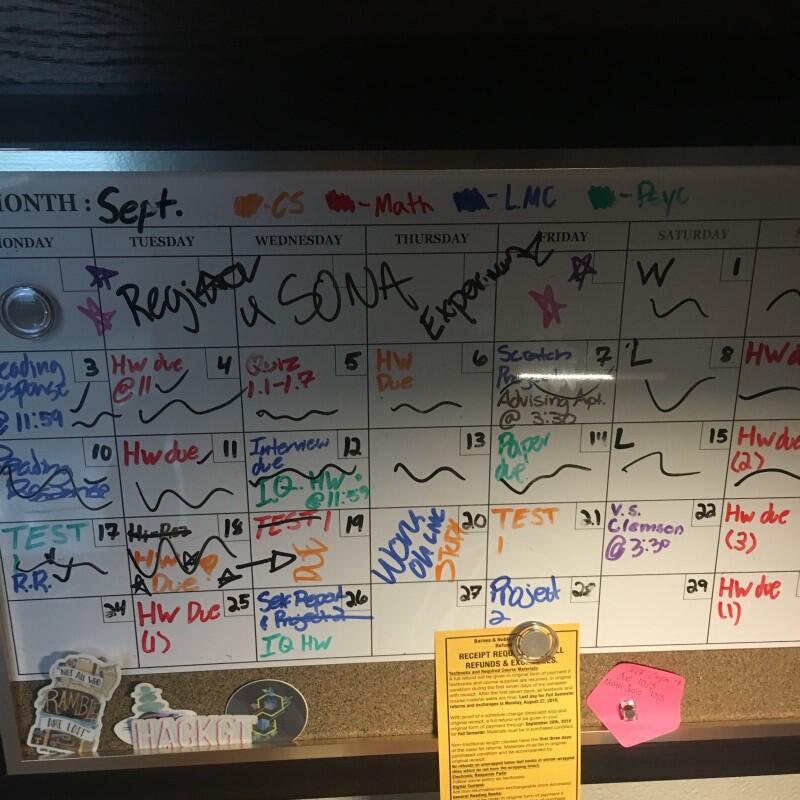 MONTH : Sept. -CS -Math -LMC -PSYC
MONDAY TUESDAY WEDNESDAY THURSDAY FRIDAY SATURDAY
Register 4 SONA Experiment
W 1
Reading Response @ 11:59 3
Hw due @ 11 4
Quiz 1.1-1.7 5
HW Due 6
Scratch 7
Advising Apt. @ 3:30
L 8
HW d
Reading Response 10
Hw due 11
Interview due 12
I.Q. HW @ 11:59
13
Paper due 14
L 15
Hw due (2)
TEST 1 17
R.R.
18
HW Due!
TEST 1 19
DUE
Work on LMC 20
Study
TEST 1 21
V.S. Clemson @ 3:30 22
Hw due (3)
24
HW Due (1) 25
Self Report & Project 2 26
IQ HW
27
Project 2 28
29
HW due (1)
NOT ALL WHO
RAMBLE
ARE LOST
HACKGT
Barnes & Noble
Refund
RECEIPT REQ ALL
REFUNDS & EXC ES.
Textbooks and Required Course Materials
A full refund will be given in original form of payment if
textbooks and course supplies are returned, in original
condition during the first seven days of the semester
with receipt. After the first seven days, all textbook and
course material sales are final. Last day for Full Semester
returns and exchanges is Monday, August 27, 2018.
With proof of a schedule change (drop/add slip) and
original receipt, a full refund will be given in your
original form of payment through September 20th, 2018
for Fall Semester. Materials must be in purchased condition
Non-traditional length classes have the first three days
of the class for returns. Materials must be in original
purchased condition and be accompanied by
original receipt.
No refunds on unwrapped loose-leaf books or shrink-wrapped
titles which do not have the wrapping intact.
Digital Content:
General Reading Books: